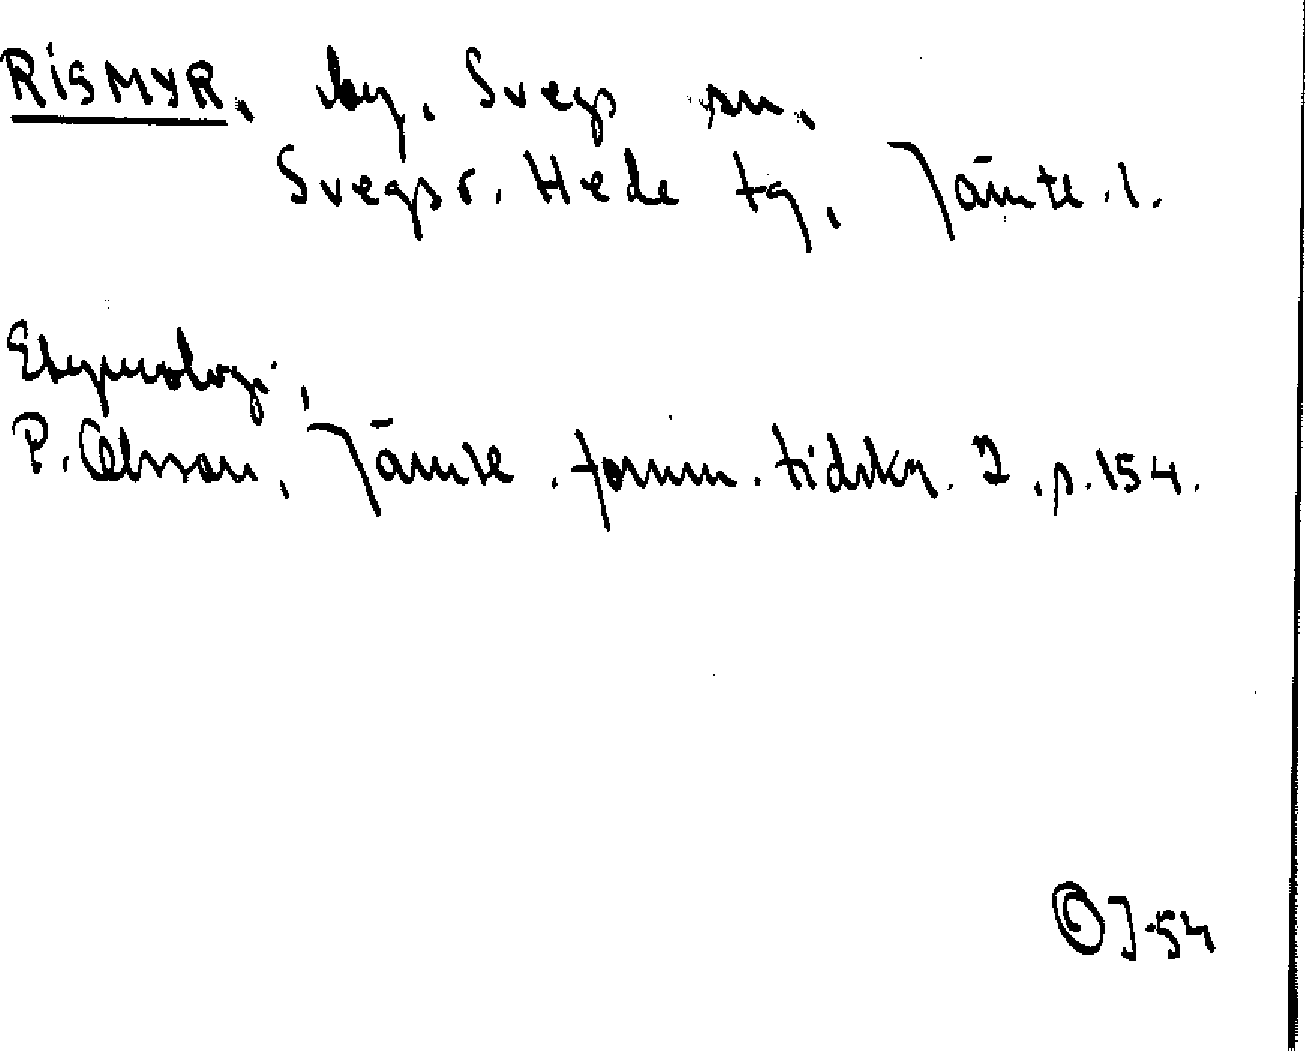 RISMYR, by, Svegs sn,
Svegs r. Hede tg, Jämtl. l.
Etymologi,
P. Olsson, Jämtl. fornm. tidskr. 2, p. 154.
OJ-54